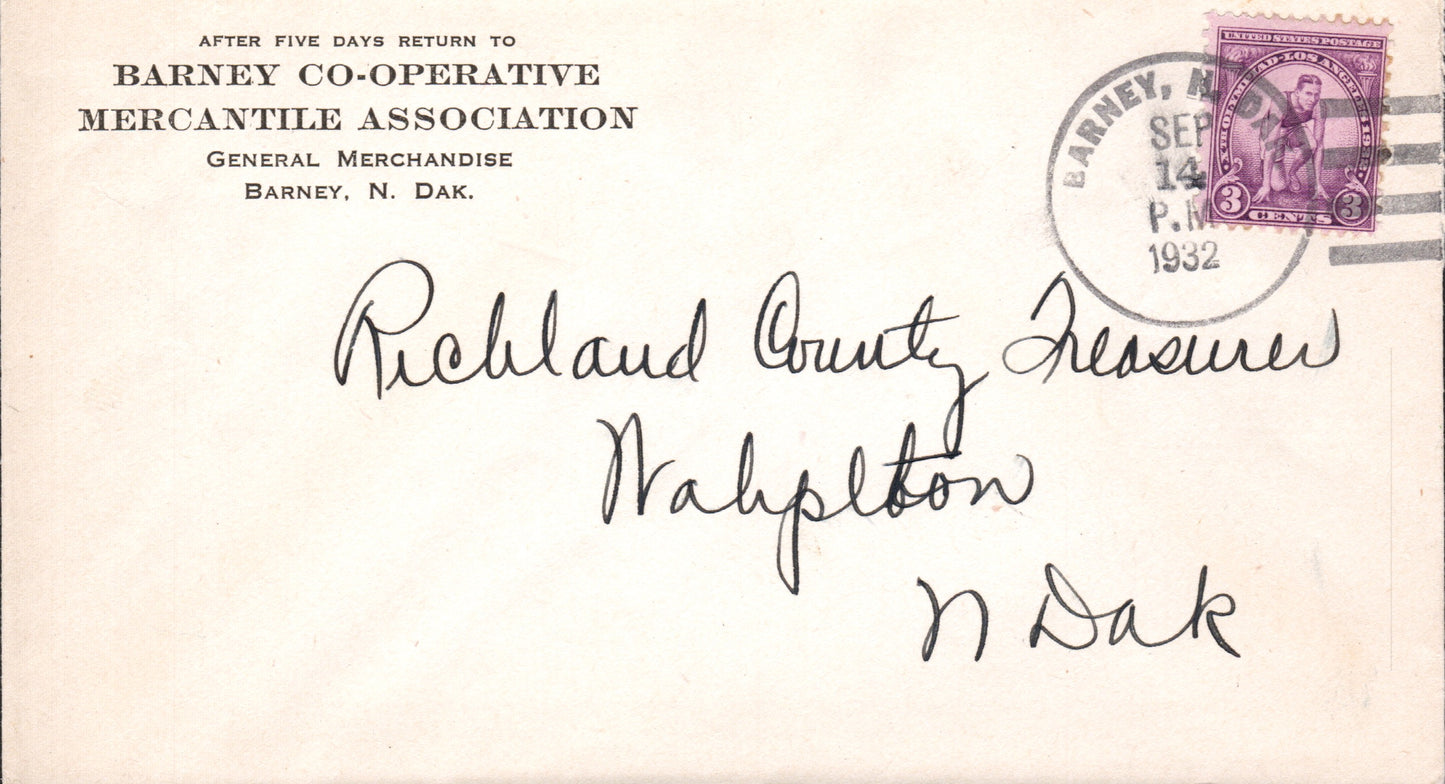 AFTER FIVE DAYS RETURN TO
BARNEY CO-OPERATIVE
MERCANTILE ASSOCIATION
GENERAL MERCHANDISE
BARNEY, N. DAK.
BARNEY, N. DAK.
SEP
14
P.M
1932
UNITED STATES POSTAGE
XTH OLYMPIAD·LOS ANGELES 1932
3 CENTS 3
Richland County Treasurer
Wahpeton
N Dak